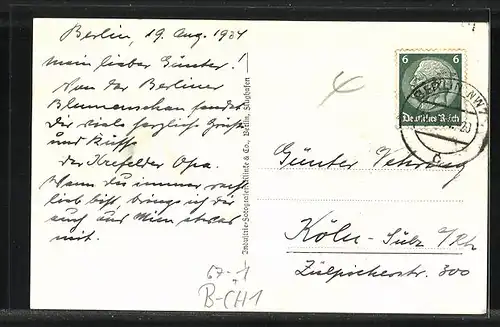 Berlin, 19. Aug. 1934
Mein lieber Günter!
Von der Berliner
Blumenschau sendet
Dir viele herzlich Grüße
und Küsse
der Krefelder Opa.
Wenn du immer recht
lieb bist, bringe ich dir
auch aus Wien etwas
mit.
Industrie-Fotografen Klinke & Co., Berlin, Flughafen
6 6
Deutsches Reich
BERLIN NW7
Günter Vehring
Köln-Sülz a/Rh
Zülpicherstr. 300
67-1
B-CH1